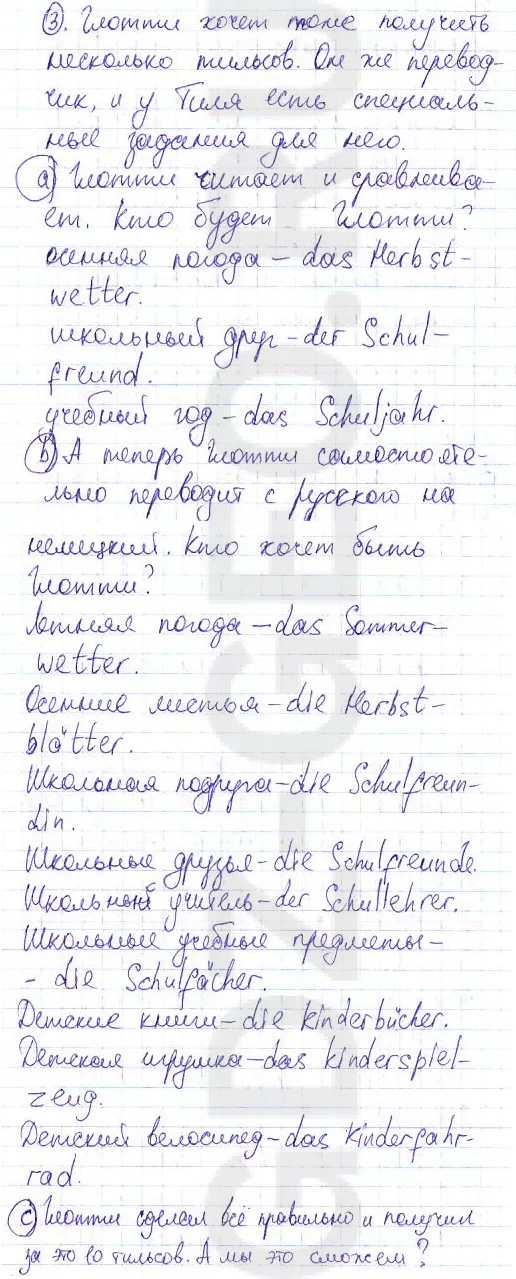 ③. Шотти хочет тоже получить
несколько тильсов. Он же перевод-
чик, и у Тиля есть специаль-
ные задания для него.
a) Шотти читает и сравнива-
ет. Кто будет Шотти?
осенняя погода – das Herbst-
wetter.
школьный друг – der Schul-
freund.
учебный год – das Schuljahr.
b) А теперь Шотти самостояте-
льно переводит с русского на
немецкий. Кто хочет быть
Шотти?
Летняя погода – das Sommer-
wetter.
Осенние листья – die Herbst-
blätter.
Школьная подруга – die Schulfreun-
din.
Школьные друзья – die Schulfreunde.
Школьный учитель – der Schullehrer.
Школьные учебные предметы –
- die Schulfächer.
Детские книги – die Kinderbücher.
Детская игрушка – das Kinderspiel-
zeug.
Детский велосипед – das Kinderfahr-
rad.
c) Шотти сделал всё правильно и получил
за это 10 тильсов. А мы это сможем?
GDZ-GEO.RU